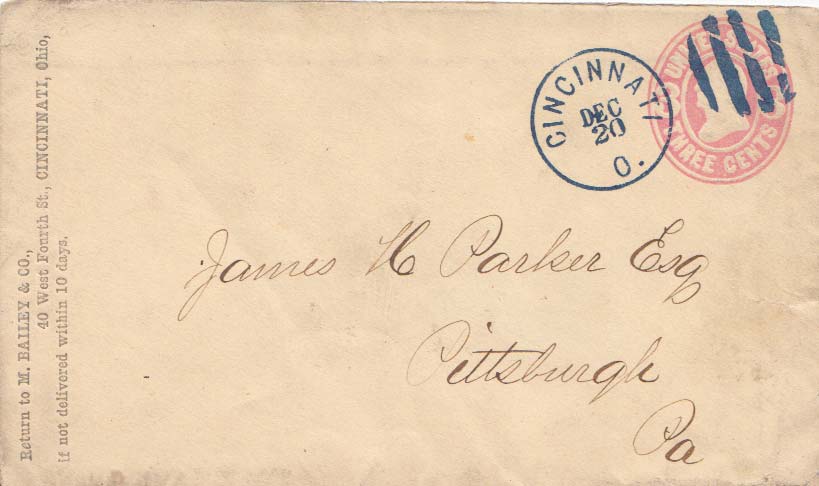 Return to M. BAILEY & CO.,
40 West Fourth St., CINCINNATI, Ohio,
if not delivered within 10 days.
CINCINNATI
DEC
20
O.
UNITED STATES
THREE CENTS
James H Parker Esq
Pittsburgh
Pa